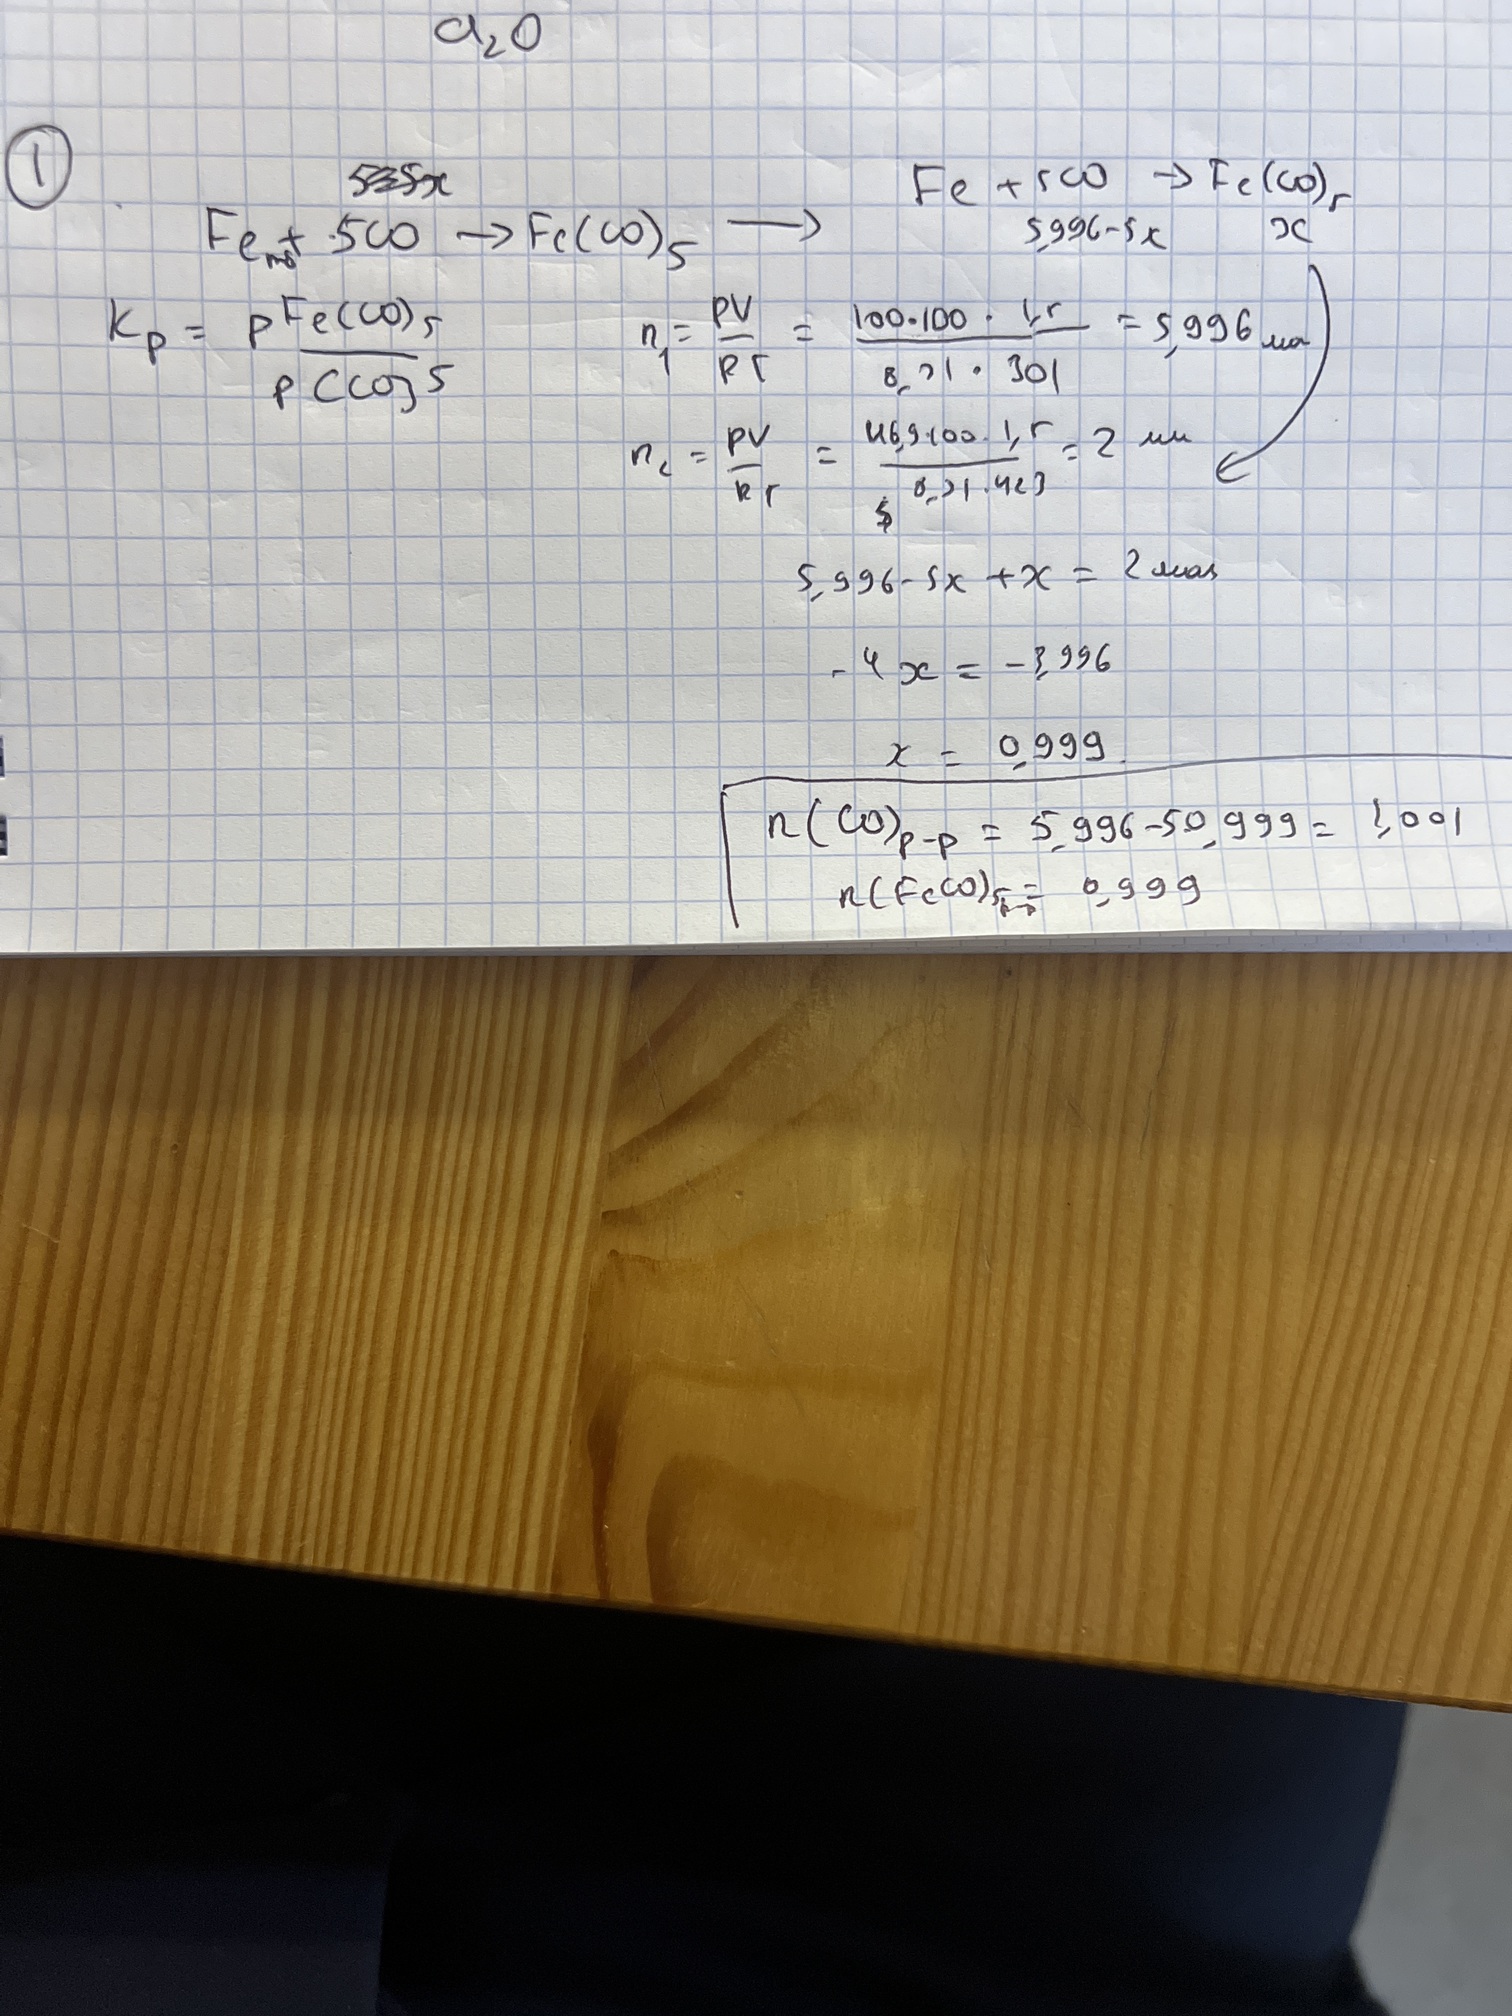 Cl₂O
①
Fe + 5CO → Fe(CO)₅ ⟶
Fe + 5CO → Fe(CO)₅
5,996-5x x
Kp = pFe(CO)₅ / p(CO)⁵
n₁ = PV / RT = 100·100 · 1,5 / 8,31 · 301 = 5,996
n₂ = PV / RT = 46,9·100·1,5 / 8,31·423 = 2
5,996-5x + x = 2 моль
-4x = -3,996
x = 0,999
n(CO)р-р = 5,996-50,999 = 1,001
n(FeCO)₅ = 0,999